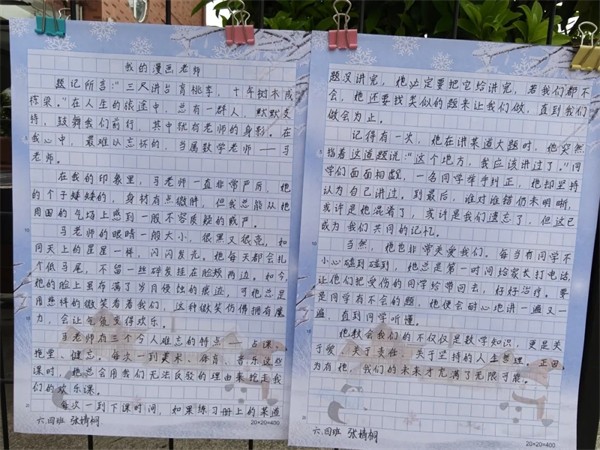 我的漫画老师
题记所言：“三尺讲台育桃李，十年树木成
栋梁。”在人生的旅途中，总有一群人，默默支
持，鼓舞我们前行，其中就有老师的身影。在
我心中，最难以忘怀的，当属数学老师——马
老师。
在我的印象里，马老师一直非常严厉，他
的个子矮矮的，身材有点微胖，但我总能从他
周围的气场上感到一股不容质疑的威严。
马老师的眼睛一般大小，很黑又很亮，如
同天上的星星一样，闪闪发光。他每天都会扎
个低马尾，不留一丝碎发挂在脸颊两边。如今，
他的脸上虽布满了岁月侵蚀的痕迹，可他总是
用慈祥的微笑看着我们，这种微笑仿佛拥有魔
力，会让气氛变得欢乐。
马老师有三个令人难忘的特点——占课、
拖堂、健忘。每次一到美术、体育、音乐这些
课时，他总会用我们无法反驳的理由来抢走我
们的欢乐课。
每次一到下课时间，如果练习册上的某道
六.四班 张婧桐
20×20=400
题没讲完，他必定要把它给讲完，若我们都不
会，他还要找类似的题来让我们做，直到我们
做会为止。
记得有一次，他在讲某道大题时，他突然
指着这道题说：“这个地方，我应该讲过了。”同
学们面面相觑，一名同学举手纠正，他却坚持
认为自己讲过。到最后，谁对谁错仍未明晰，
或许是他混淆了，或许是我们遗忘了，但这已
成为我们共同的记忆。
当然，他也非常关爱我们。每当有同学不
小心磕到碰到，他总是第一时间给家长打电话，
让他们把受伤的同学给带回去，好好治疗。要
是同学有不会的题，他便会耐心地讲一遍又一
遍，直到同学听懂。
他教会我们的不仅仅是数学知识，更是关
于爱、关于责任、关于坚持的人生哲理。正因
为有他，我们的未来才充满了无限可能。
六.四班 张婧桐
20×20=400